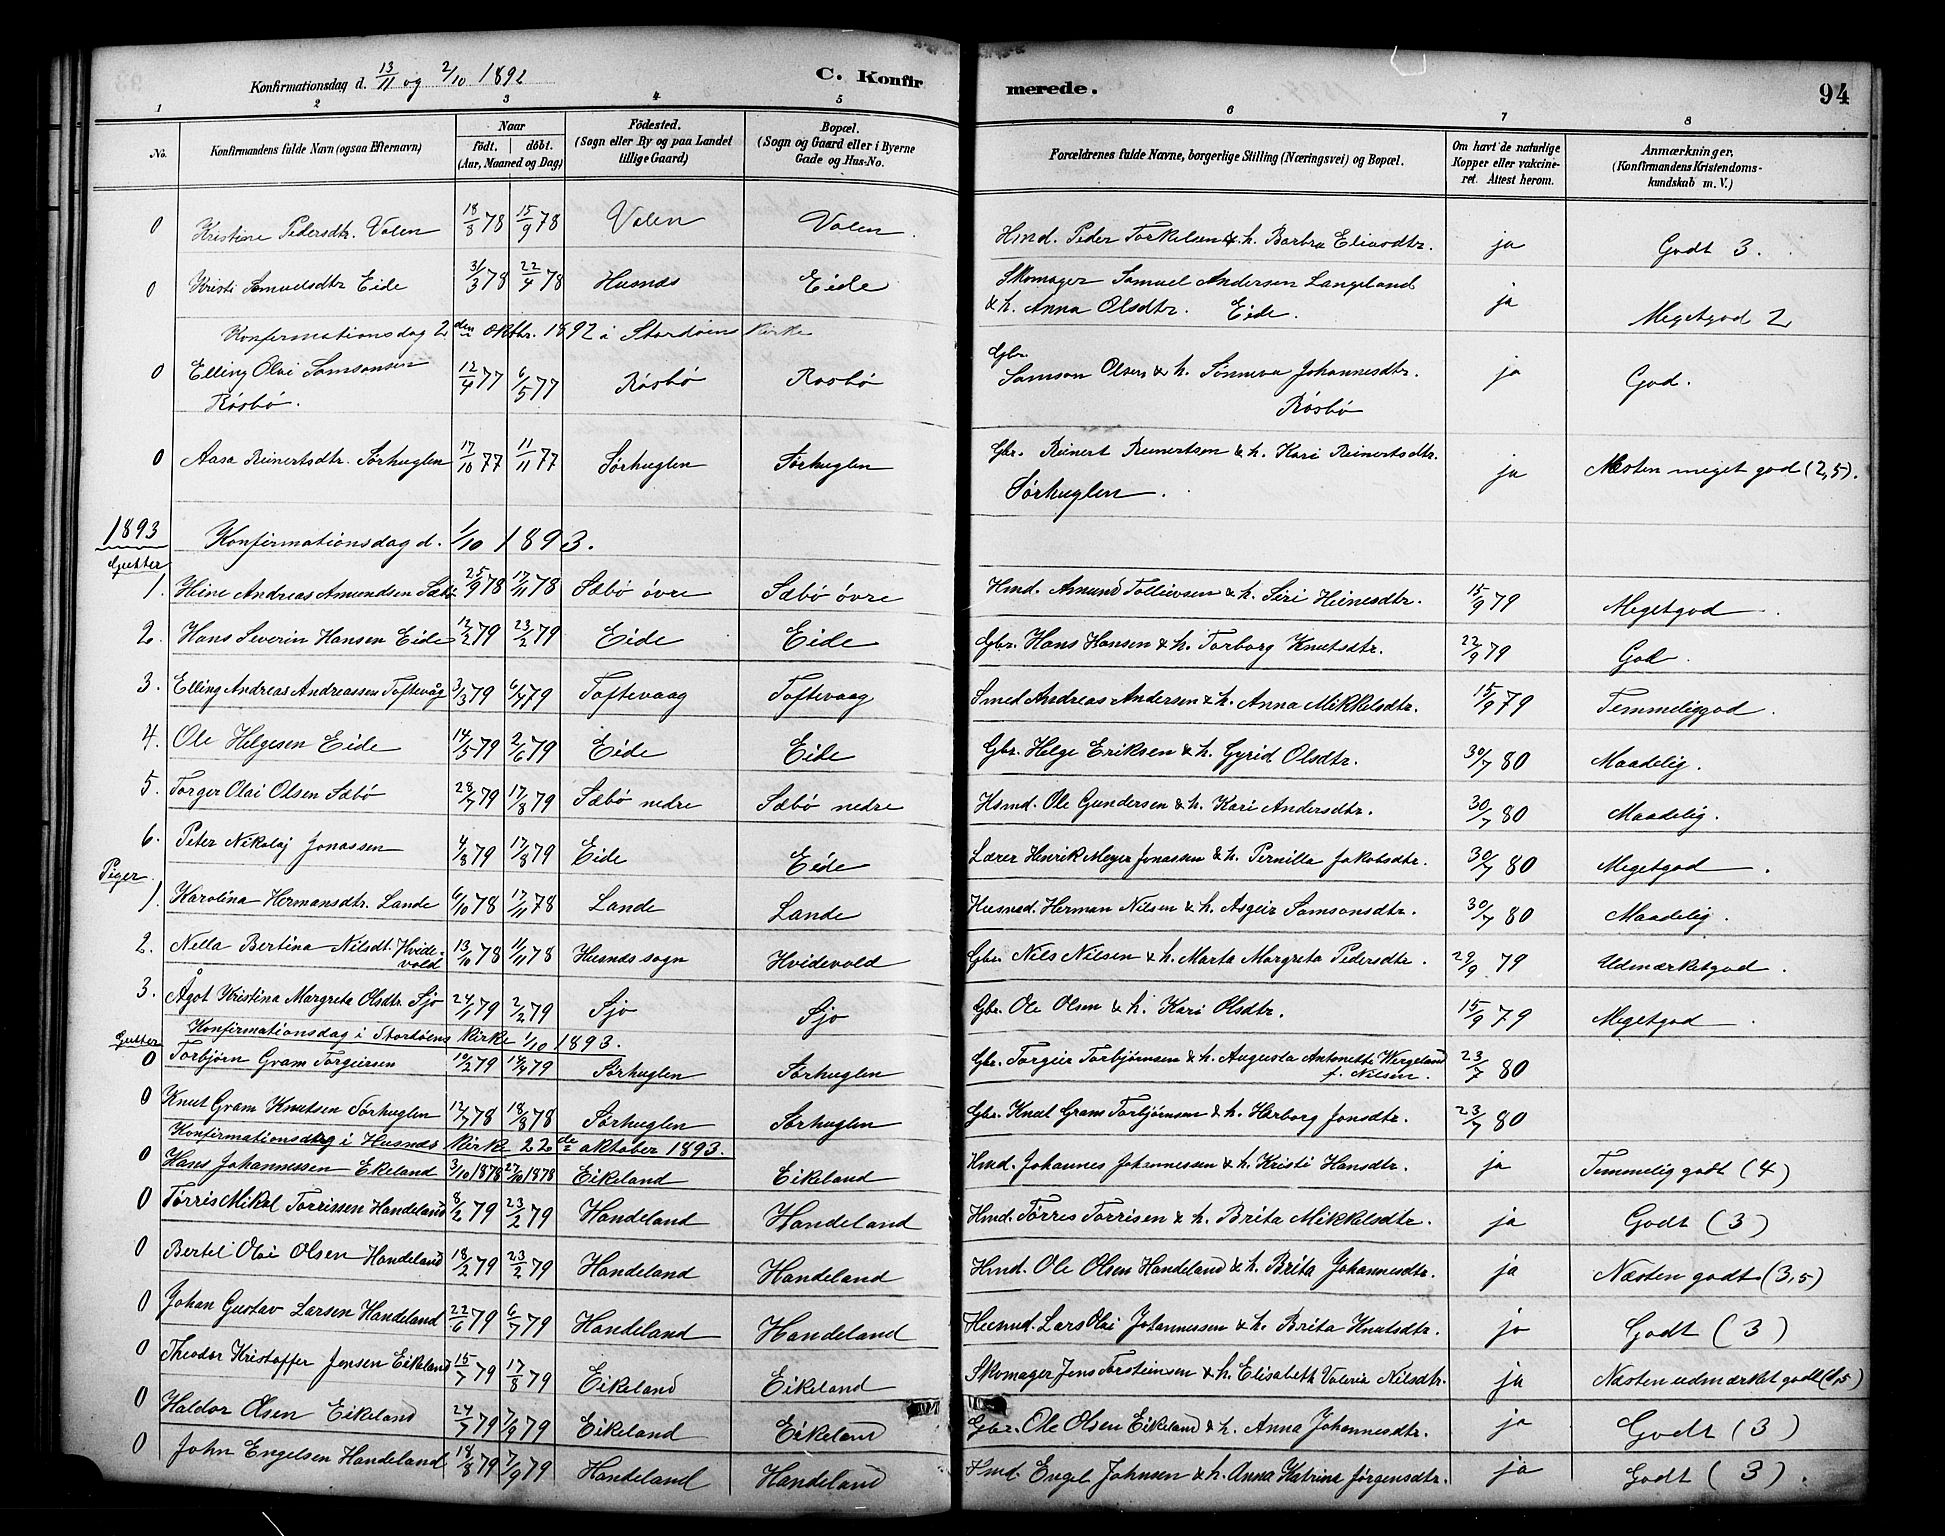 Konfirmationsdag d. 13/11 og 2/10 1892
C. Konfirmerede.
94
1 2 3 4 5 6 7 8
No.
Konfirmandens fulde Navn (ogsaa Efternavn)
Naar
födt. döbt.
(Aar, Maaned og Dag)
Födested.
(Sogn eller By og paa Landet
tillige Gaard)
Bopæl.
(Sogn og Gaard eller i Byerne
Gade og Hus-No.
Forældrenes fulde Navne, borgerlige Stilling (Næringsvei) og Bopæl.
Om havt de naturlige
Kopper eller vakcine-
ret. Attest herom.
Anmærkninger.
(Konfirmandens Kristendoms-
kundskab m. V.)
0 Kristine Pedersdtr. Valen 18/8 78 15/9 78 Valen Valen. Hmd. Peder Torkelsen & h. Barbra Eliasdtr. ja Godt 3.
0 Kristi Samuelsdtr Eide 31/3 78 22/4 78 Husnæs Eide Skomager Samuel Andersen Langeland
& h. Anna Olsdtr. Eide. ja Megetgod 2
Konfirmationsdag 2den Oktbr. 1892 i Stordöens Kirke
0 Elling Olai Samsonsen 12/4 77 6/5 77 Rösbö Rosbö Gbr. Samson Olsen & h. Sönneva Johannesdtr. ja God.
Rösbö. Rösbö
0 Aasa Reinertsdtr. Sörhuglen 17/10 77 11/11 77 Sörhuglen Sörhuglen Gbr. Reinert Reinertsen & h. Kari Reinertsdtr. ja Næsten meget god (2,5).
Sörhuglen.
1893 Konfirmationsdag d. 1/10 1893.
Gutter
1. Heine Andreas Amundsen Sæbö 25/9 78 17/11 78 Sæbö övre Sæbö övre Hmd. Amund Tollevsen & h. Siri Heinesdtr. 15/9 79 Megetgod
2. Hans Severin Hansen Eide 12/2 79 23/2 79 Eide Eide Gbr. Hans Hansen & h. Torborg Knutsdtr. 22/9 79 God.
3. Elling Andreas Andreassen Toftevåg 3/3 79 6/4 79 Toftevaag Toftevaag Smed Andreas Andersen & h. Anna Mikkelsdtr. 15/9 79 Temmeliggod.
4. Ole Helgesen Eide 14/5 79 2/6 79 Eide Eide Gbr. Helge Eriksen & h. Gyrid Olsdtr. 30/7 80 Maadelig.
5. Torger Olai Olsen Sæbö 28/7 79 17/8 79 Sæbö nedre Sæbö nedre Hsmd. Ole Gundersen & h. Kari Andersdtr. 30/7 80 Maadelig.
6. Peter Nikolaj Jonassen 4/8 79 17/8 79 Eide Eide Lærer Henrik Meyer Jonassen & h. Pernilla Jakobsdtr. 30/7 80 Megetgod.
Piger.
1. Karolina Hermansdtr. Lande 6/10 78 17/11 78 Lande Lande Husmd. Herman Nilsen & h. Asgeir Samsonsdtr. 30/7 80 Maadelig.
2. Nella Bertina Nilsdt. Hvide-
vold 13/10 78 11/11 78 Husnæs sogn Hvidevold Gbr. Nils Nilsen & h. Marta Margreta Pedersdtr. 29/9 79 Udmærketgod.
3. Ågot Kristina Margreta Olsdtr. Sjo 24/1 79 2/2 79 Sjo Sjo Gbr. Ole Olsen & h. Kari Olsdtr. 15/9 79 Megetgod.
Konfirmationsdag i Stordöens Kirke 1/10 1893.
Gutter
0 Torbjörn Gram Torgeirsen 79 79 Sörhuglen Sörhuglen Gbr. Torgeir Torbjörnsen & h. Augusta Antonette Wergeland
f. Nilsen. 23/7 80
0 Knut Gram Knutsen Sörhuglen 12/7 78 18/8 78 Sörhuglen Sörhuglen Gbr. Knut Gram Torbjörnsen & h. Herborg Jonsdtr. 23/7 80
Konfirmationsdag i Husnæs Kirke 22de oktober 1893.
0 Hans Johannessen Ekeland 3/10 1878 27/10 1878 Eikeland Eikeland Hmd. Johannes Johannessen & h. Kristi Hansdtr. ja Temmelig godt (4)
0 Törris Mikal Torrissen Handeland 8/2 79 23/2 79 Handeland Handeland Hmd. Törres Torrisen & h. Brita Mikkelsdtr. ja Godt (3)
0 Bertel Olai Olsen Handeland 18/2 79 23/2 79 Handeland Handeland Hmd. Ole Olsen Handeland & h. Brita Johannesdtr. ja Næsten godt (3,5)
0 Johan Gustav Larsen Handeland 22/6 79 6/7 79 Handeland Handeland Husmd. Lars Olai Johannessen & h. Brita Knutsdtr. ja Godt (3)
0 Theodor Kristoffer Jensen Eikeland 15/7 79 17/8 79 Eikeland Eikeland Skomager Jens Torsteinsen & h. Elisabeth Valeria Nilsdtr. ja Næsten udmærket godt (1,5)
0 Haldor Olsen Eikeland 24/7 79 7/9 79 Eikeland Eikeland Gbr. Ole Olsen Eikeland & h. Anna Johannesdtr. ja Godt (3)
0 John Engelsen Handeland 18/8 79 7/9 79 Handeland Handeland Hmd. Engel Johnsen & h. Anna Katrine Jörgensdtr. ja Godt (3).